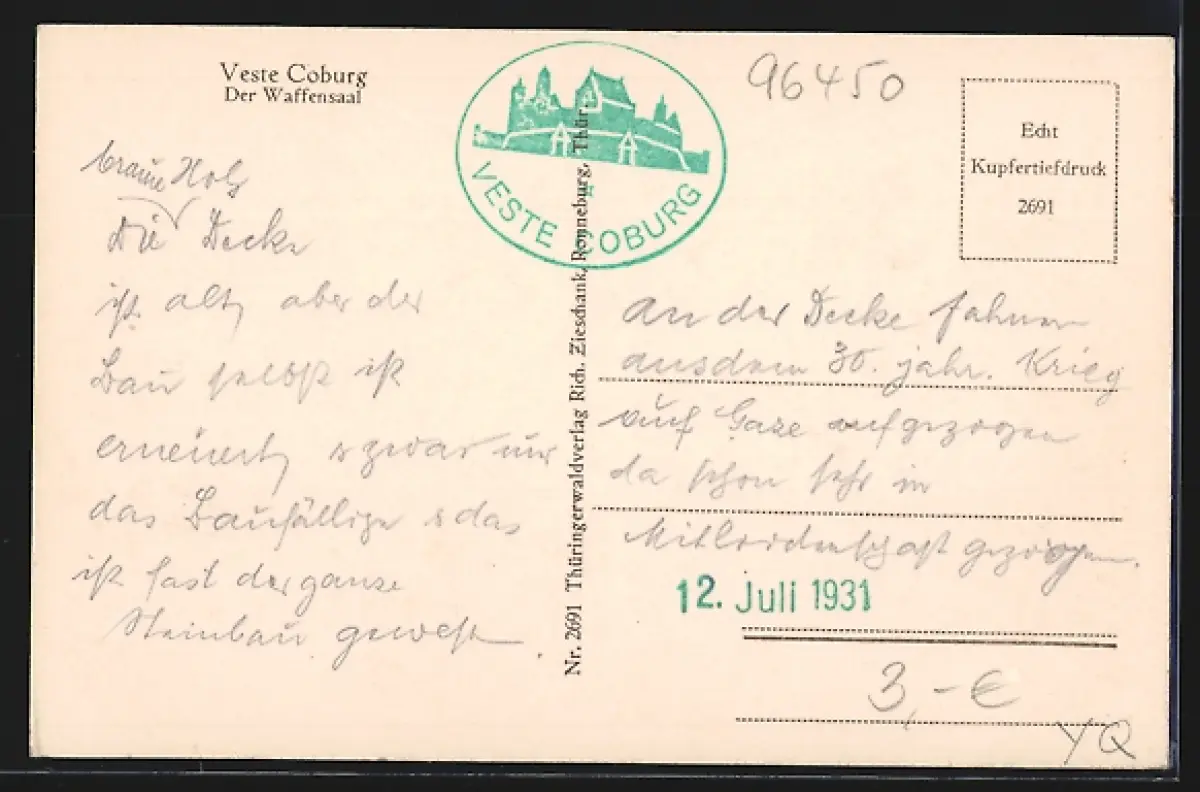 Veste Coburg
Der Waffensaal
braune Holz
Die Decke
ist alt, aber der
Bau selbst ist
erneuert, & zwar nur
das Baufällige & das
ist fast der ganze
Steinbau gewest.
VESTE COBURG
Nr. 2691 Thüringerwaldverlag Rich. Zieschank, Ronneburg, Thür.
96450
Echt
Kupfertiefdruck
2691
An der Decke Fahnen
aus dem 30. jähr. Krieg
auf Gaze aufgezogen
da schon sehr in
Mitleidenschaft gezogen.
12. Juli 1931
3,-€
YQ